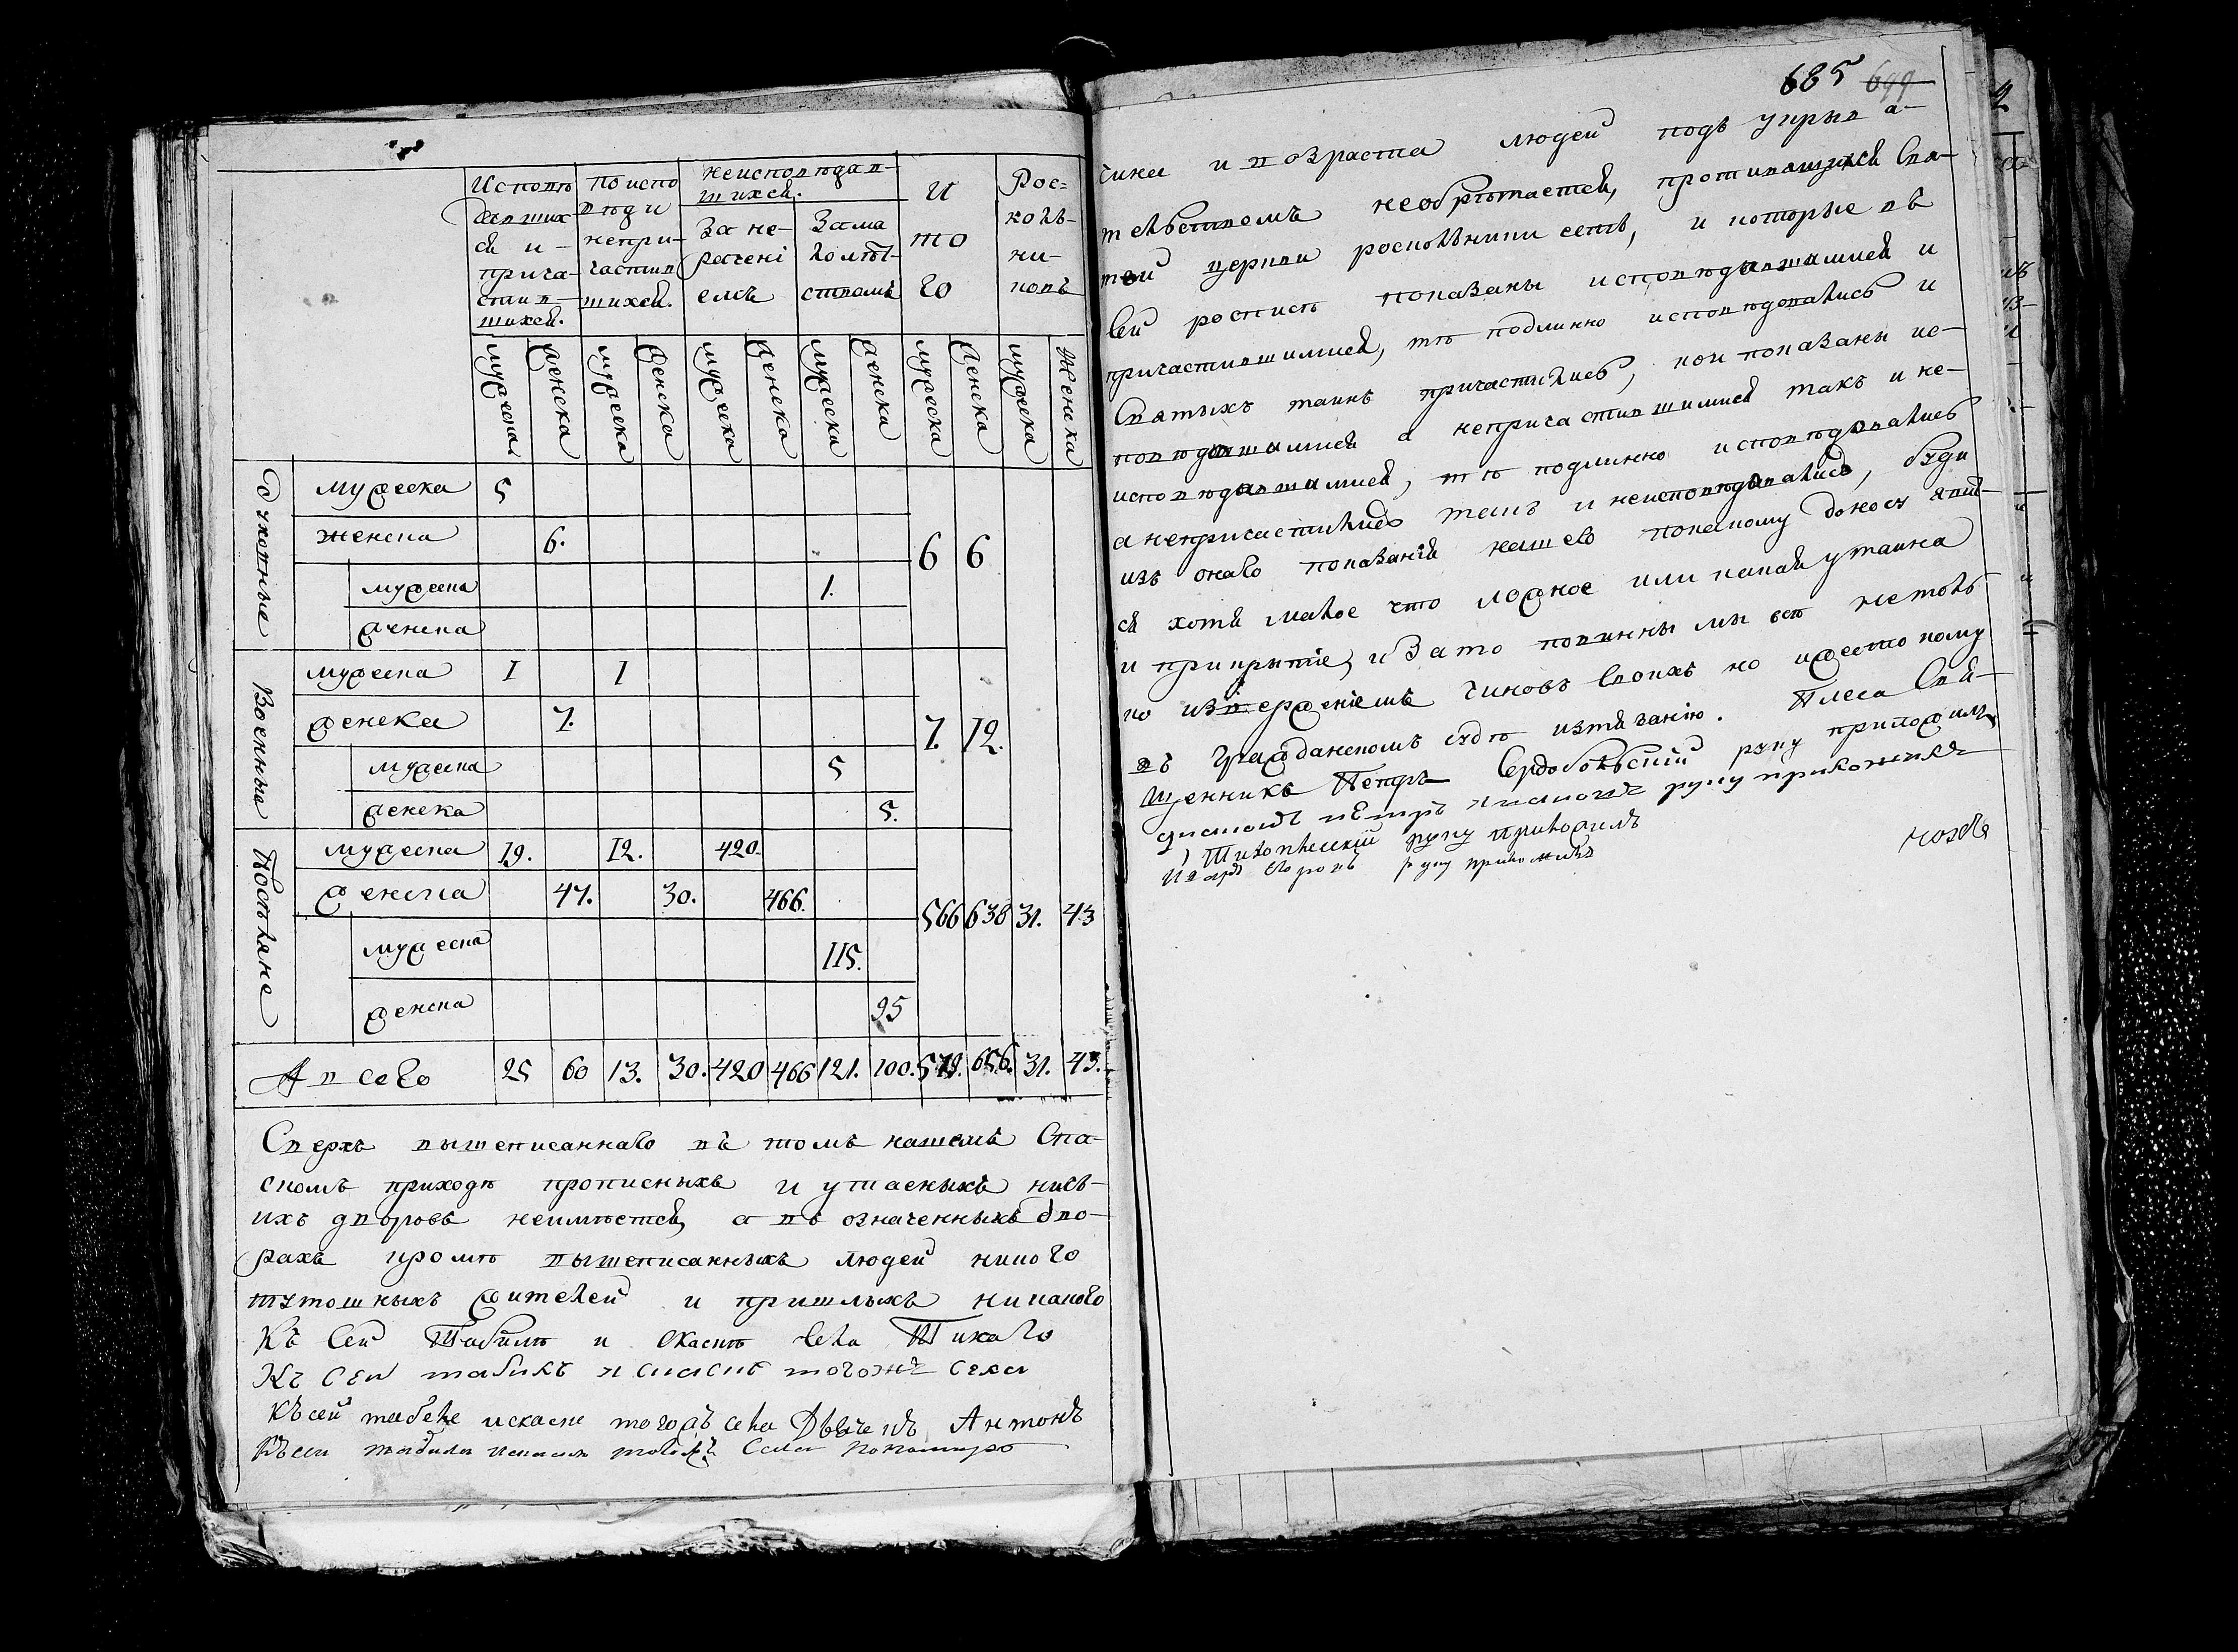 Исповѣдавшихся и причастившихся.
По исповѣди непричастившихся.
Неисповѣдавшихся.
За нерачениемъ
За малолѣтствомъ
Итого
Росколниковъ
мужеска женска мужеска женска мужеска женска мужеска женска мужеска женска мужеска женска
Духовные
мужеска 5
женска 6.
6 6
мужеска 1.
женска
Военныя
мужеска 1 1
женска 7.
7. 12.
мужеска 5
женска 5.
Посѣляне
мужеска 19. 12. 420
женска 47. 30. 466.
566 638 31. 43
мужеска 115.
женска 95
А всего 25 60 13. 30. 420 466 121. 100. 579. 656. 31. 43.
Сверхъ вышеписаннаго въ томъ нашемъ Спа-
скомъ приходѣ прописныхъ и утаеныхъ ничь-
ихъ дворовъ неимѣется, а въ означенныхъ дво-
рахъ кромѣ вышеписанныхъ людей никого
тутошныхъ жителей и пришлыхъ никаково
Къ сей табѣлѣ и скаскѣ села Тихаго
Къ сей табѣлѣ и скаскѣ тогожъ села
Къ сей табеле искаске тогожъ села Дьячекъ Антонъ
Къ сей табели искаски тогожъ села пономарь
685 699
чина и возраста людей подъ укрыва-
телствомъ необрѣтается, противящихся свя-
той церкви росколники есть, и которые въ
сей росписѣ показаны исповѣдавшимися и
причастившимися, тѣ подлинно исповѣдовались и
святыхъ таинъ причастились, кои показаны ис-
повѣдавшимися а непричастившимися такъ и не-
исповѣдавшимися, тѣ подлинно исповѣдовались
а непричастились такъ и неисповѣдовались, буди
изъ онаго показания нашего покакому доносу явит-
ся хотя малое что ложное или какая утаика
и прикрытие, и за то повинны мы все нетокъ
мо извержениемъ чиновъ своихъ но и жестокому
въ гражданскомъ судѣ изтязанию. Плеса Свя-
щенникъ Петръ Сердобольский руку приложилъ
Петръ Ивановъ руку приложилъ
руку приложилъ
Егоровъ руку приложилъ